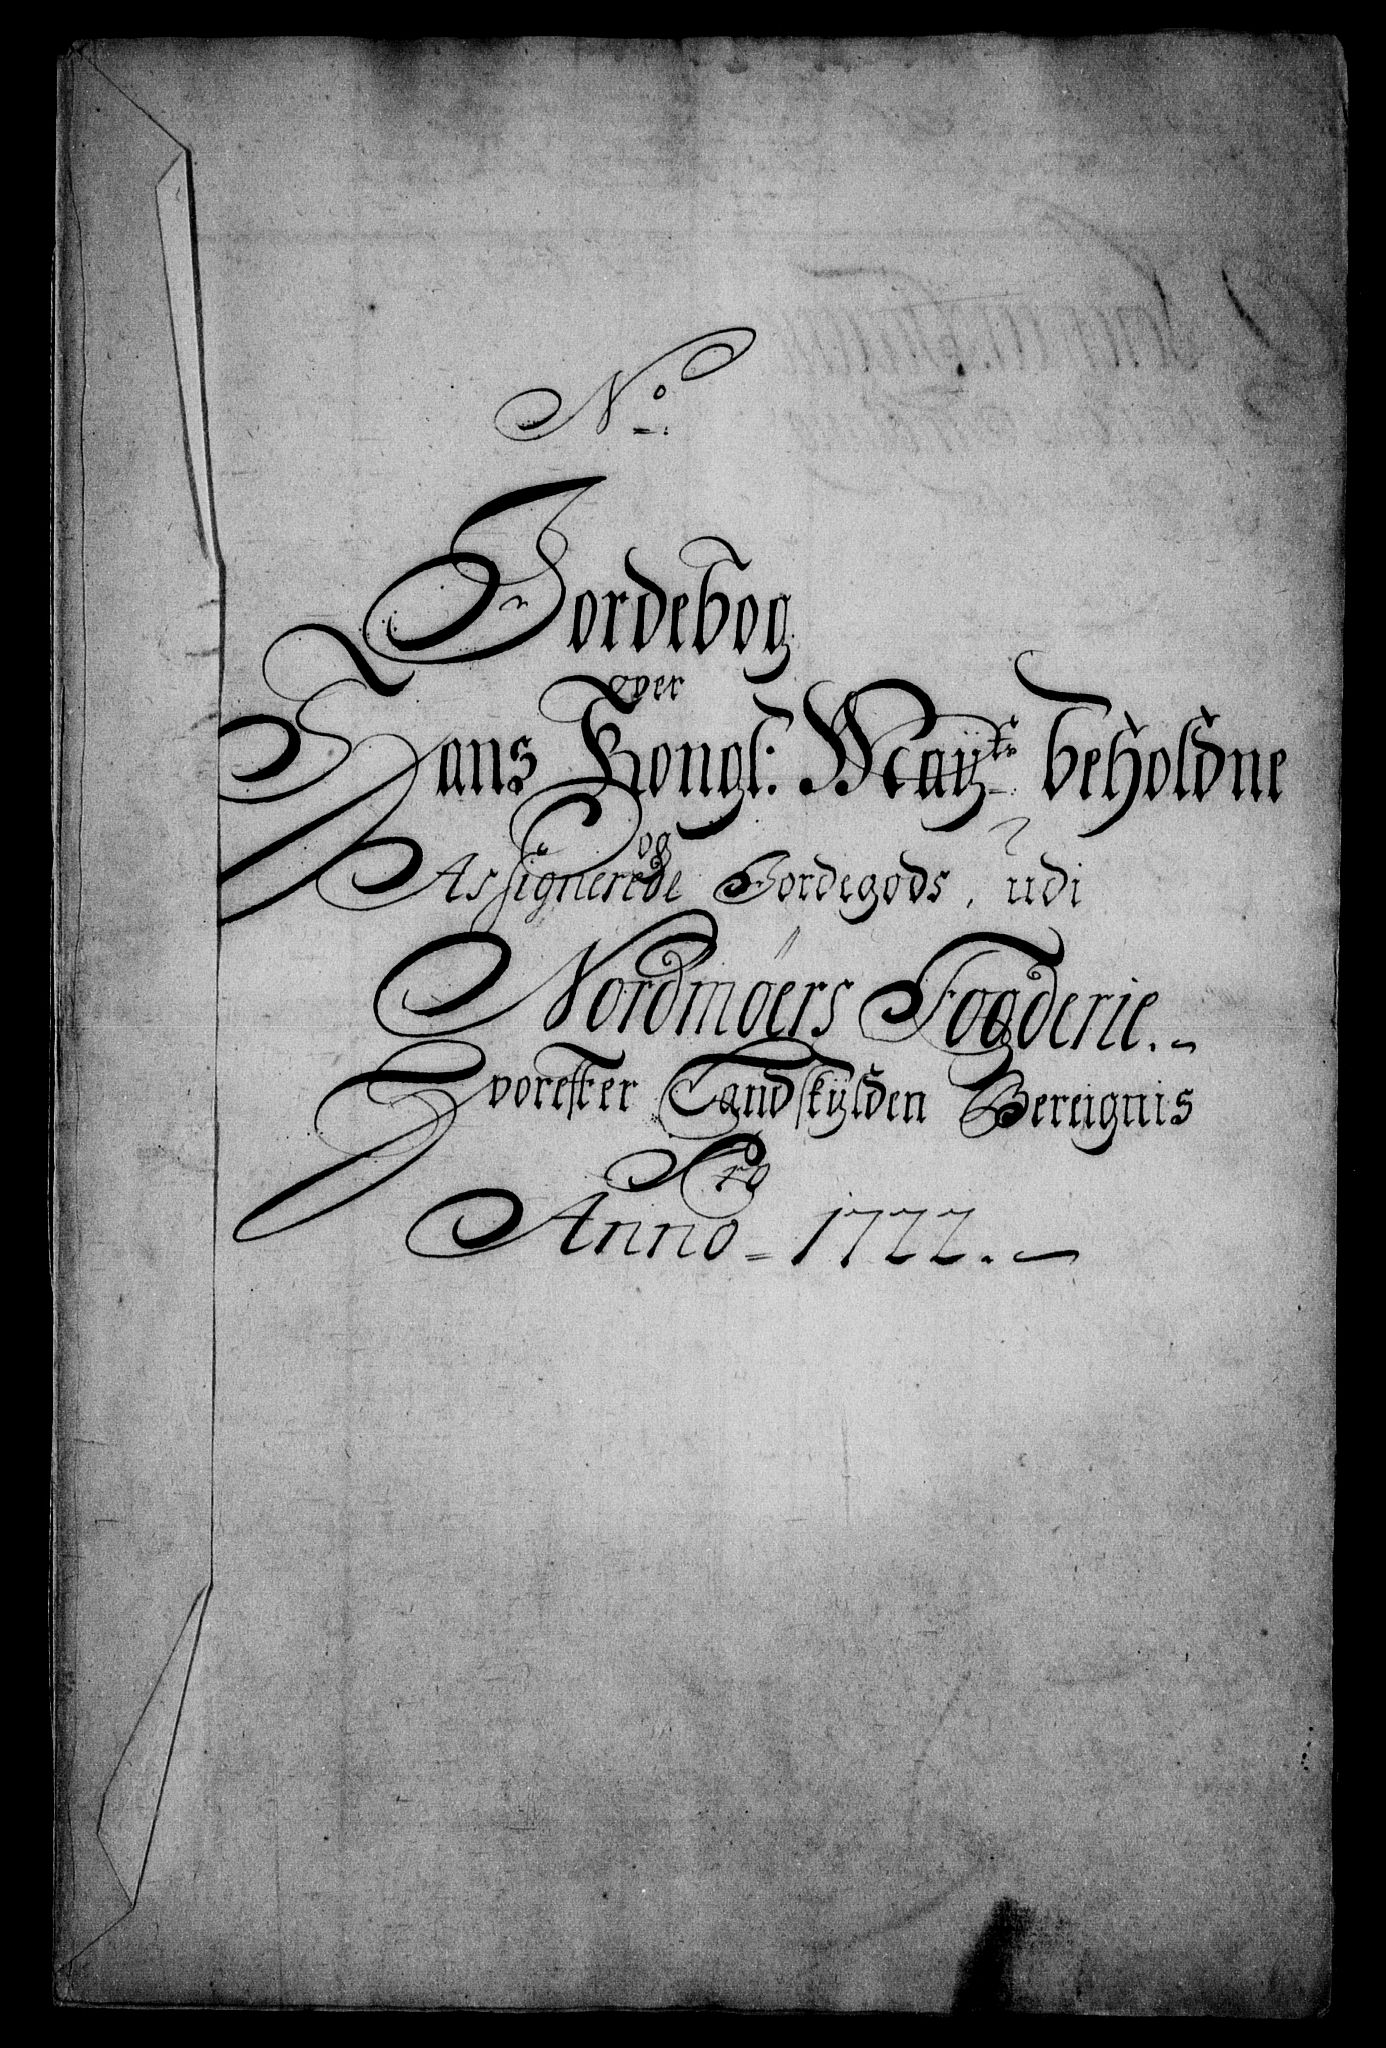 No.
Jordebog
over
Hans Kongl: Mayts beholdne
og
Assignerede Jordegods, udi
Nordmøers Fogderie.
Hvorefter Landskylden Bereignis
Pro
Anno = 1722.